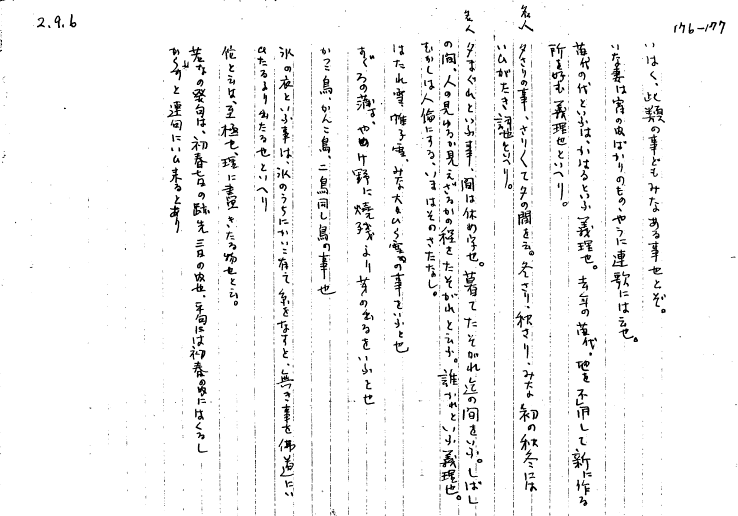 176-177
2.9.6
いはく、此類の事どもみなある事也とぞ。
いな妻は宵の内ばかりのものゝやうに連歌には云也。
苗代の代といふはかはるといふ義理也。去年の苗代の地を不用して新に作る
所を好む義理也といへり。
名人 夕さりの事、さりくて夕の間を云。冬さり・秋さり・みな初の秋冬には
いひがたき詞也といへり。
名人 夕まぐれといふ事、間は休め字也。暮てたそがれ迄の間をいふ。しばし
の間、人の見ゆるか見えざるかの程をたそがれと云ふ。誰かれといふ義理也。
むかしは人倫にする、いまはそのさたなし。
はたれ雪、帷子雪、みな大びら雪の事をいふと也
すぐろの薄は、やけ野に焼残より芽の出るをいふと也
かつこ鳥、かんこ鳥、二鳥同し鳥の事也
氷の衣といふ事は、氷のうちにかいこ有て糸をなすと、無き事を佛道にい
ひたるより出たる也といへり
佗と云は、至極也、理に盡きたる物也と云。
若なの發句は、初春七日の跡先三日の内也、平句には初春の内にはくるし
からずと連句にいひ来るとあり